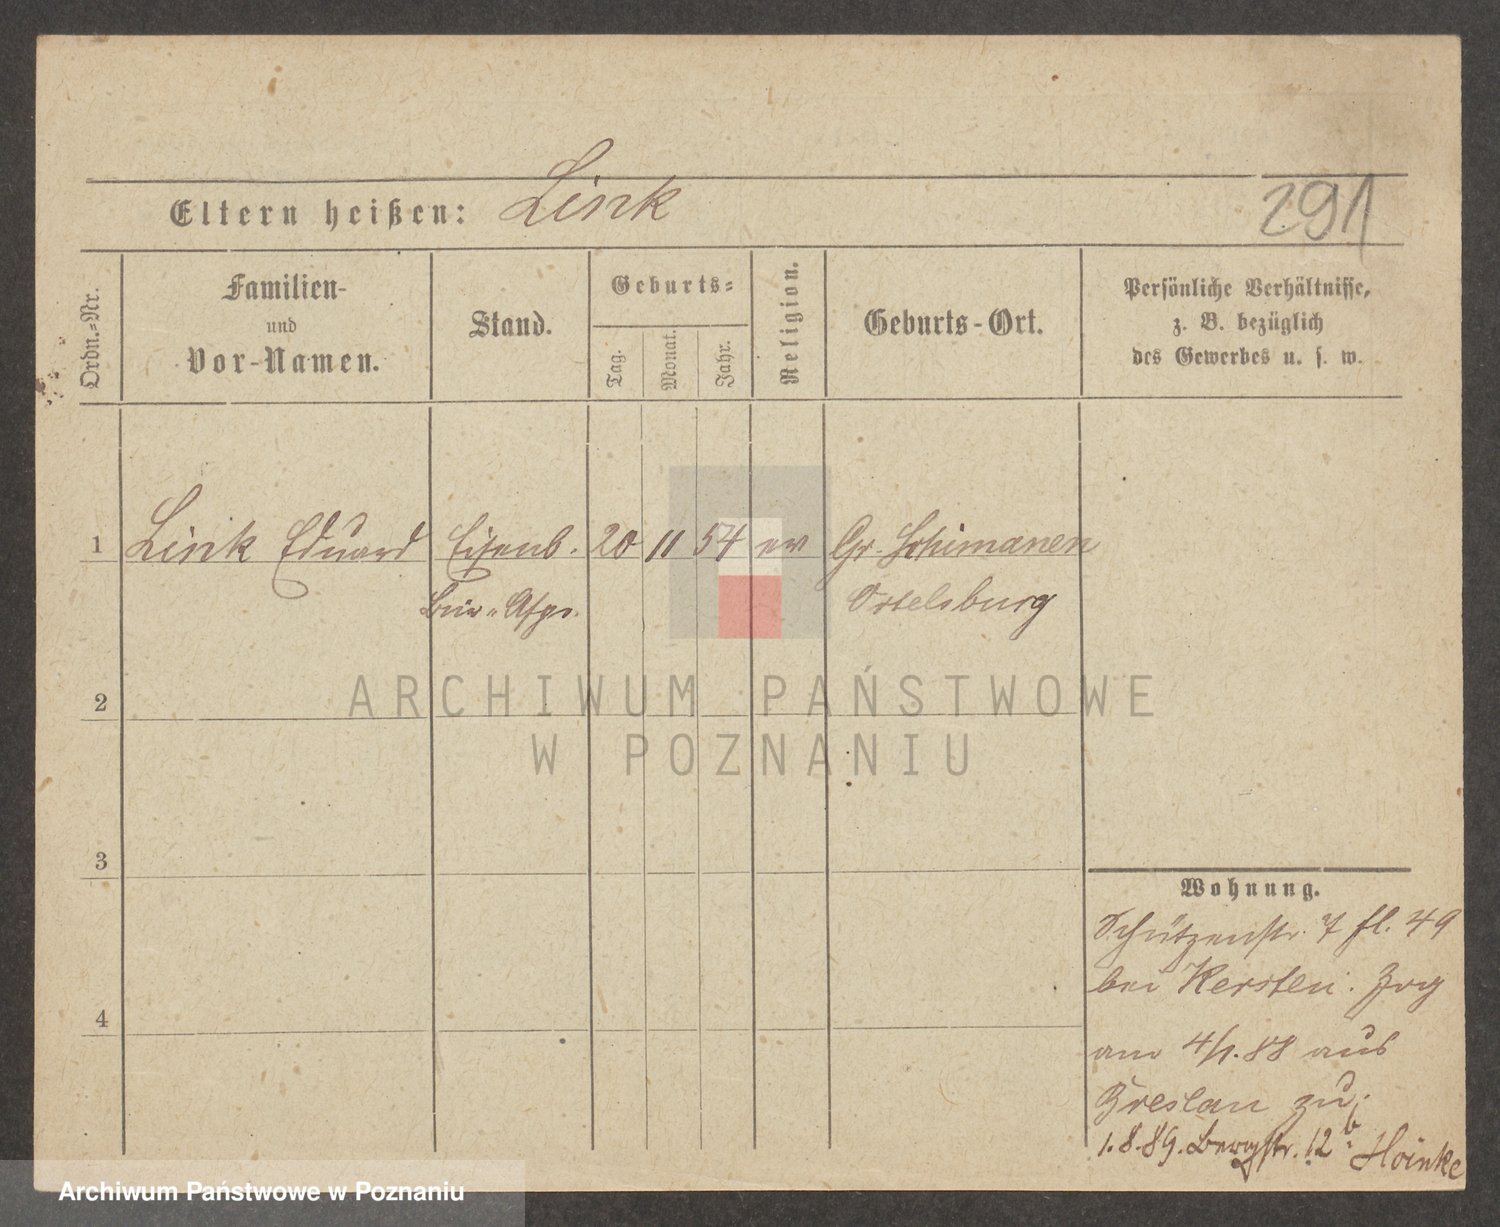 Eltern heißen: Link
291
Ordn.=Nr.
Familien-
und
Vor-Namen.
Stand.
Geburts=
Tag.
Monat.
Jahr.
Religion.
Geburts-Ort.
Persönliche Verhältnisse,
z. B. bezüglich
des Gewerbes u. s. w.
1 Link Eduard Eisenb. 20 11 54 ev Gr. Schimanen
Bür. Ortelsburg
ARCHIWUM PAŃSTWOWE
2
W POZNANIU
3
Wohnung.
Schützenstr. 7 fl. 49
bei Kersten.
4
am 4/1.88 aus
Breslau zu.
1.8.89. Bergstr. 12b Hoinke
Archiwum Państwowe w Poznaniu